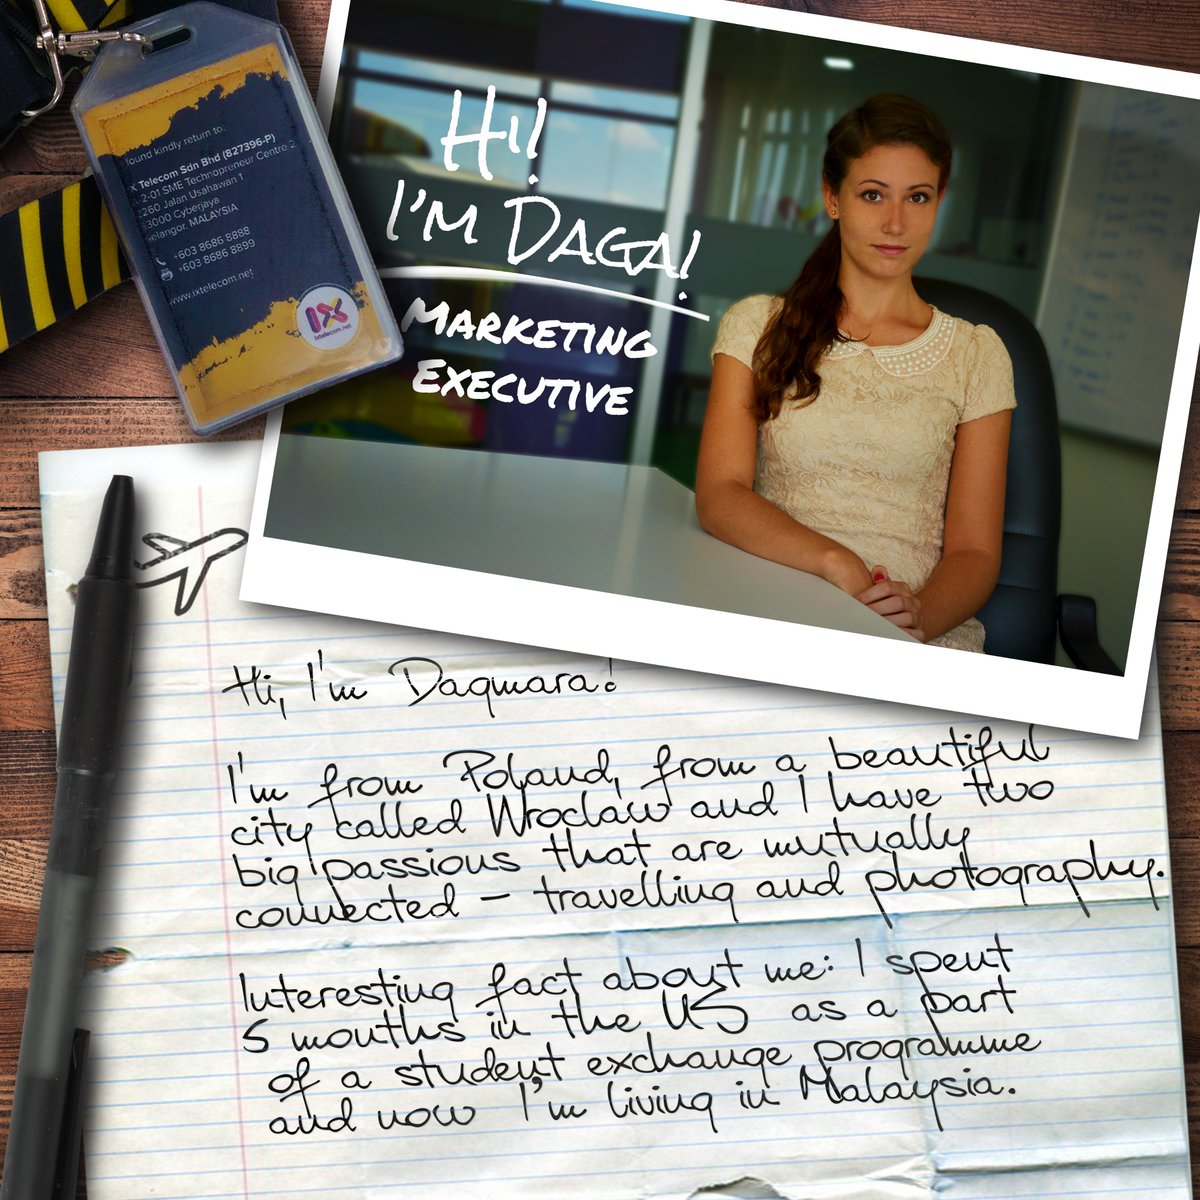 found kindly return to:
IX Telecom Sdn Bhd (827396-P)
2-2-01 SME Technopreneur Centre 2
2260 Jalan Usahawan 1
63000 Cyberjaya
Selangor, MALAYSIA
+603 8686 8888
+603 8686 8899
www.ixtelecom.net
IX
ixtelecom.net
Hi!
I'm Daga!
Marketing
Executive
Hi, I'm Dagmara!
I'm from Poland, from a beautiful
city called Wroclaw and I have two
big passions that are mutually
connected – travelling and photography.
Interesting fact about me: I spent
5 months in the US as a part
of a student exchange programme
and now I'm living in Malaysia.